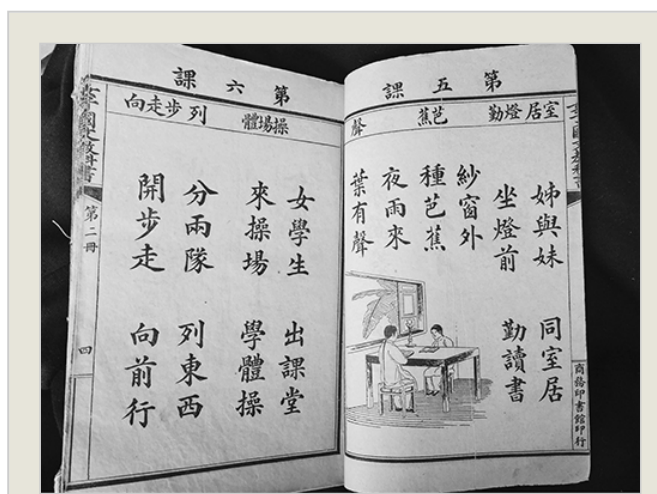 第五課
室居 燈勤 芭蕉 聲
姊與妹 同室居
坐燈前 勤讀書
紗窗外
種芭蕉
夜雨來
葉有聲
商務印書館印行
第六課
操場體 列步走向
女學生 出課堂
來操場 學體操
分兩隊 列東西
開步走 向前行
國文教科書 第二冊 四